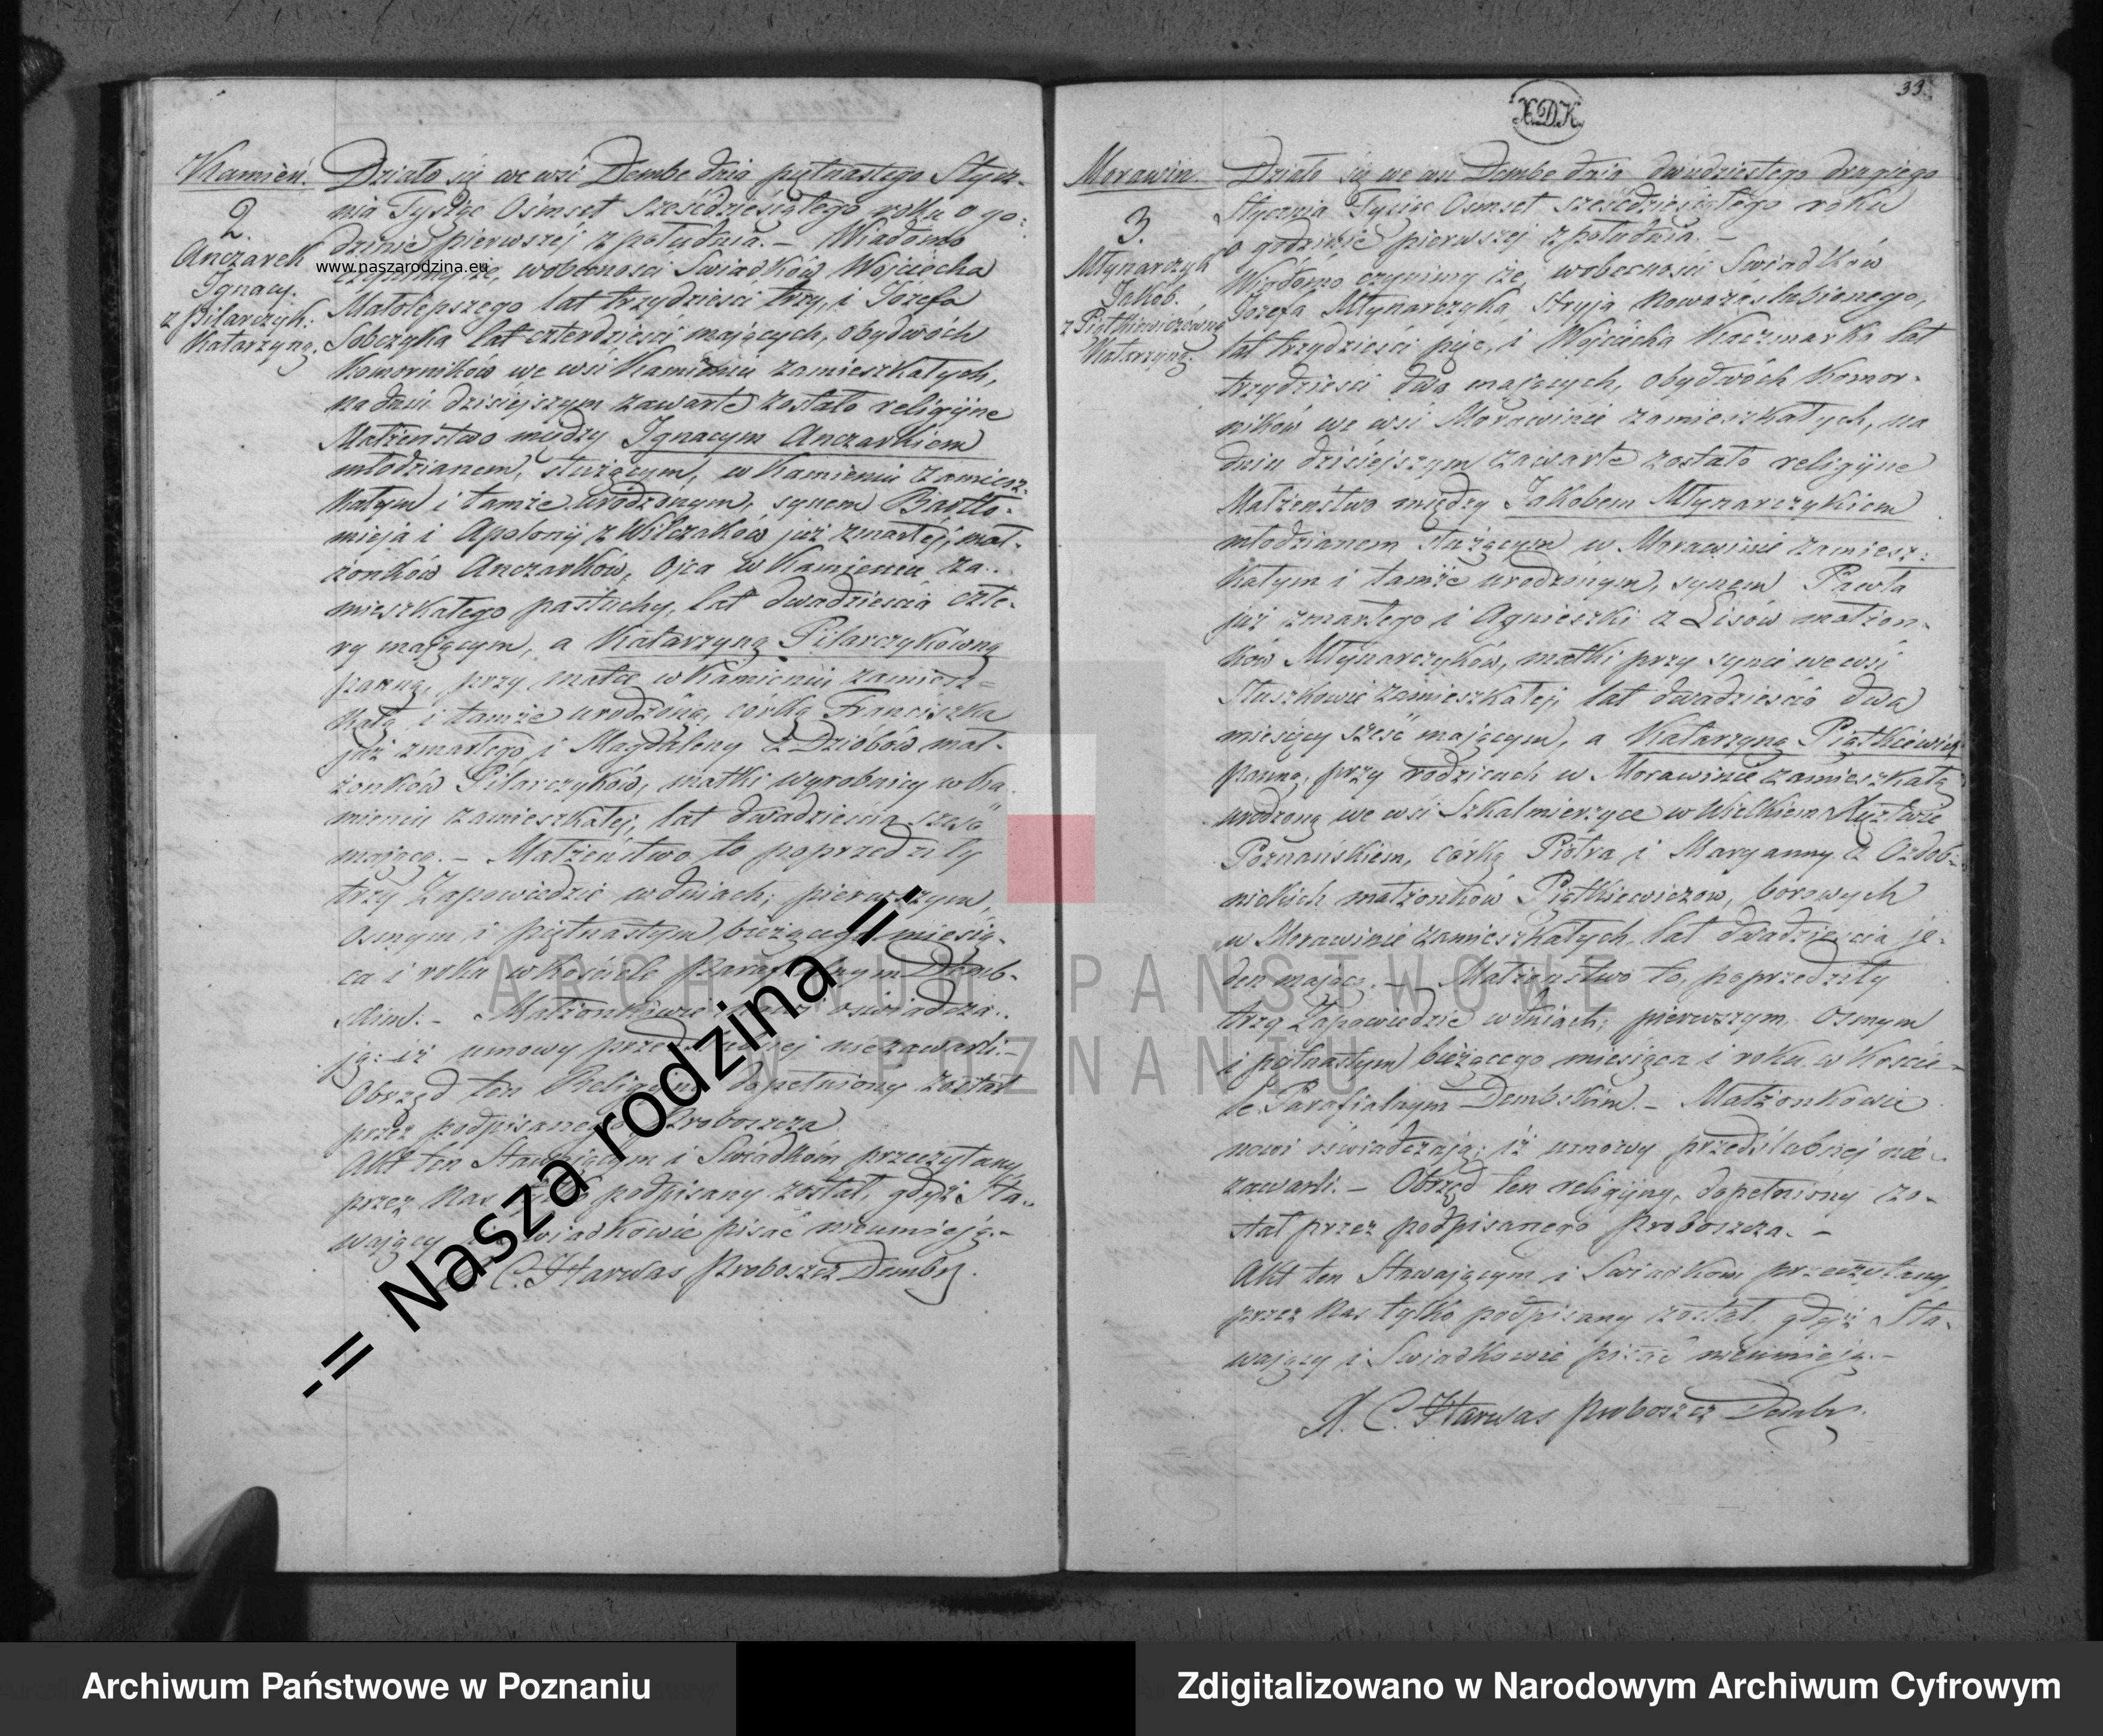 Kamień.
2.
Anczarek
Ignacy.
z Pilarczyk:
Katarzyną.
Działo się we wsi Dembe dnia piętnastego Stycz-
nia Tysiąc Ośmset sześćdziesiątego roku o go-
dzinie pierwszej z południa. – Wiadomo
czyniemy, że, wobecności Świadków Wojciecha
Małolepszego lat trzydzieści trzy, i Józefa
Sobczyka lat czterdzieści mających, obydwóch
Komorników we wsi Kamieniu zamieszkałych,
na dniu dzisiejszym zawarte zostało religijne
Małżeństwo między Ignacym Anczarkiem
młodzianem, służącym, w Kamieniu zamiesz-
kałym i tamże urodzonym, synem Bartło-
mieja i Apolonij z Wilczaków już zmarłéj, mał-
żonków Anczarków, Ojca w Kamieniu za-
mieszkałego pastuchy, lat dwadzieścia czte-
ry mającym, a Katarzyną Pilarczykówną
panną, przy matce w Kamieniu zamiesz=
kałą i tamże urodzoną, córką Franciszka
już zmarłego i Magdaleny z Dziobów mał-
żonków Pilarczyków, matki wyrobnicy w Ka
mieniu zamieszkałej, lat dwadzieścia sześć
mającą. – Małżeństwo to poprzedziły
trzy Zapowiedzie w dniach; pierwszym,
osmym i piętnastym bieżącego miesią-
ca i roku w Kościele Parafialnym Demb-
skim. – Małżonkowie nowi oświadcza-
ją: iż umowy przedślubnej niezawarli. –
Obrzęd ten Religijny dopełniony został
przez podpisanego Proboszcza
Akt ten Stawiącym i Świadkóm przeczytany,
przez Nas tylko podpisany został, gdyż Sta-
wający i Świadkowie pisać nieumieją. –
X. C. Harwas Proboszcz Dembs.
www.naszarodzina.eu
-= Nasza rodzina =-
33.
X.D.K.
Morawin
3.
Młynarczyk
Jakób.
z Piątkiewiczówną
Katarzyną.
Działo się we wsi Dembe dnia dwudziestego drugiego
Stycznia Tysiąc Ośmset sześćdziesiątego roku
o godzinie pierwszej z południa. –
Wiadomo czyniemy że, wobecności Świadków
Józefa Młynarczyka, stryja nowozaślubionego,
lat trzydzieści pięć, i Wojciecha Kaczmarka lat
trzydzieści dwa mających, obydwóch Komor-
ników we wsi Morawinie zamieszkałych, na
dniu dzisiejszym zawarte zostało religijne
Małżeństwo między Jakóbem Młynarczykiem
młodzianem służącym w Morawinie zamiesz-
kałym i tamże urodzonym, synem Pawła
już zmarłego i Agnieszki z Lisów małżon-
ków Młynarczyków, matki przy synie we wsi
Tłuszkowie zamieszkałej, lat dwadzieścia dwa
miesięcy sześć mającym, a Katarzyną Piątkiewicz
panną, przy rodzicach w Morawinie zamieszkałą
urodzoną we wsi Szkalmierzyce w Wielkiem Xięztwie
Poznańskiem, córką Piotra i Maryanny z Ozdob-
nickich małżonków Piątkiewiczów, borowych
w Morawinie zamieszkałych, lat dwadzieścia je-
den mającą. – Małżeństwo to, poprzedziły
trzy Zapowiedzie w dniach; pierwszym, osmym
i piętnastym bieżącego miesiąca i roku w Koście-
le Parafialnym Dembskim. – Małżonkowie
nowi oświadczają; iż umowy przedślubnej nie-
zawarli. – Obrzęd ten religijny, dopełniony zo-
stał przez podpisanego Proboszcza. –
Akt ten Stawającym i Świadkom przeczytany,
przez Nas tylko podpisany został, gdyż Sta-
wający i Świadkowie pisać nieumieją. –
X. C. Harwas Proboszcz Dembs.
ARCHIWUM PAŃSTWOWE
W POZNANIU
Archiwum Państwowe w Poznaniu
Zdigitalizowano w Narodowym Archiwum Cyfrowym